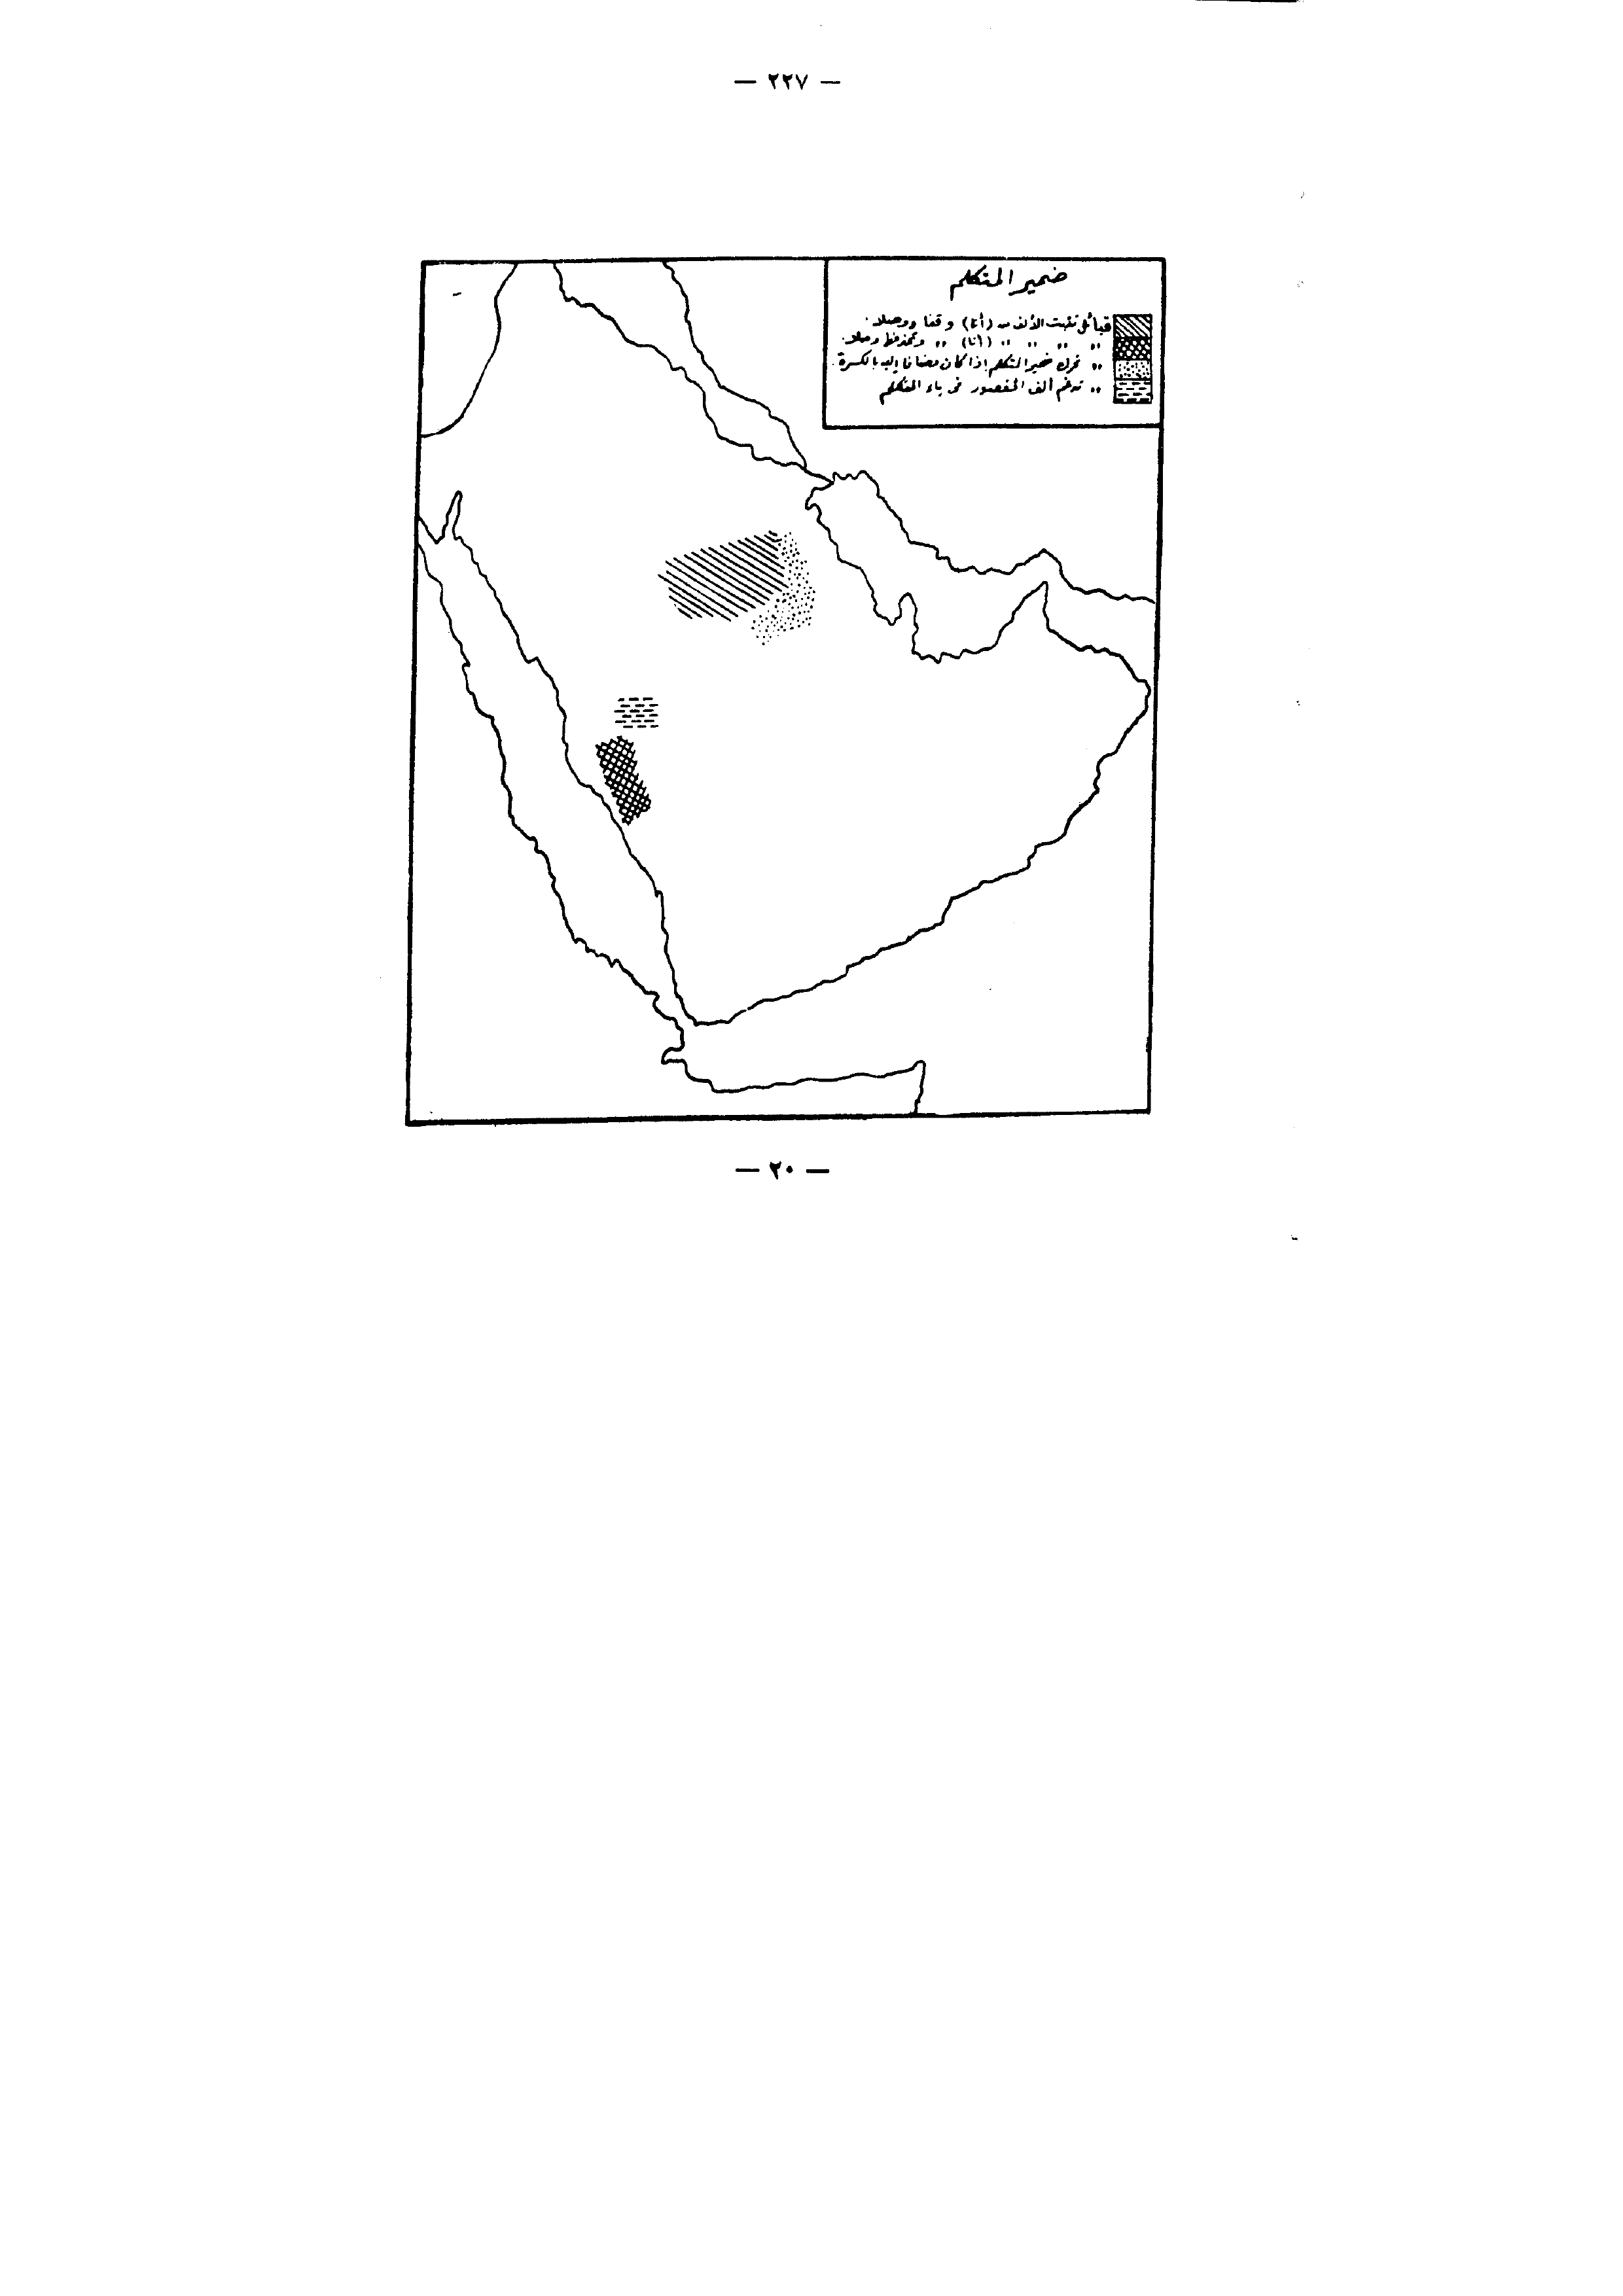 — ٢٢٧ —
ضمير المتكلم
قبائل تثبت الألف من (أنا) وقفا ووصلا.
٫٫ ٫٫ ٫٫ ٫٫ (أنا) ٫٫ وتحذفها وصلا.
٫٫ تحرك ضمير المتكلم إذا كان مضافا إليه بالكسرة.
٫٫ تدغم ألف المقصور في ياء المتكلم
— ٢٠ —